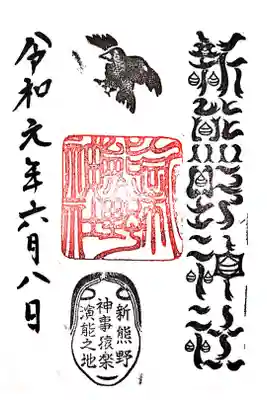 新熊野神社
令和元年六月八日
新熊野
神事猿楽
演能之地